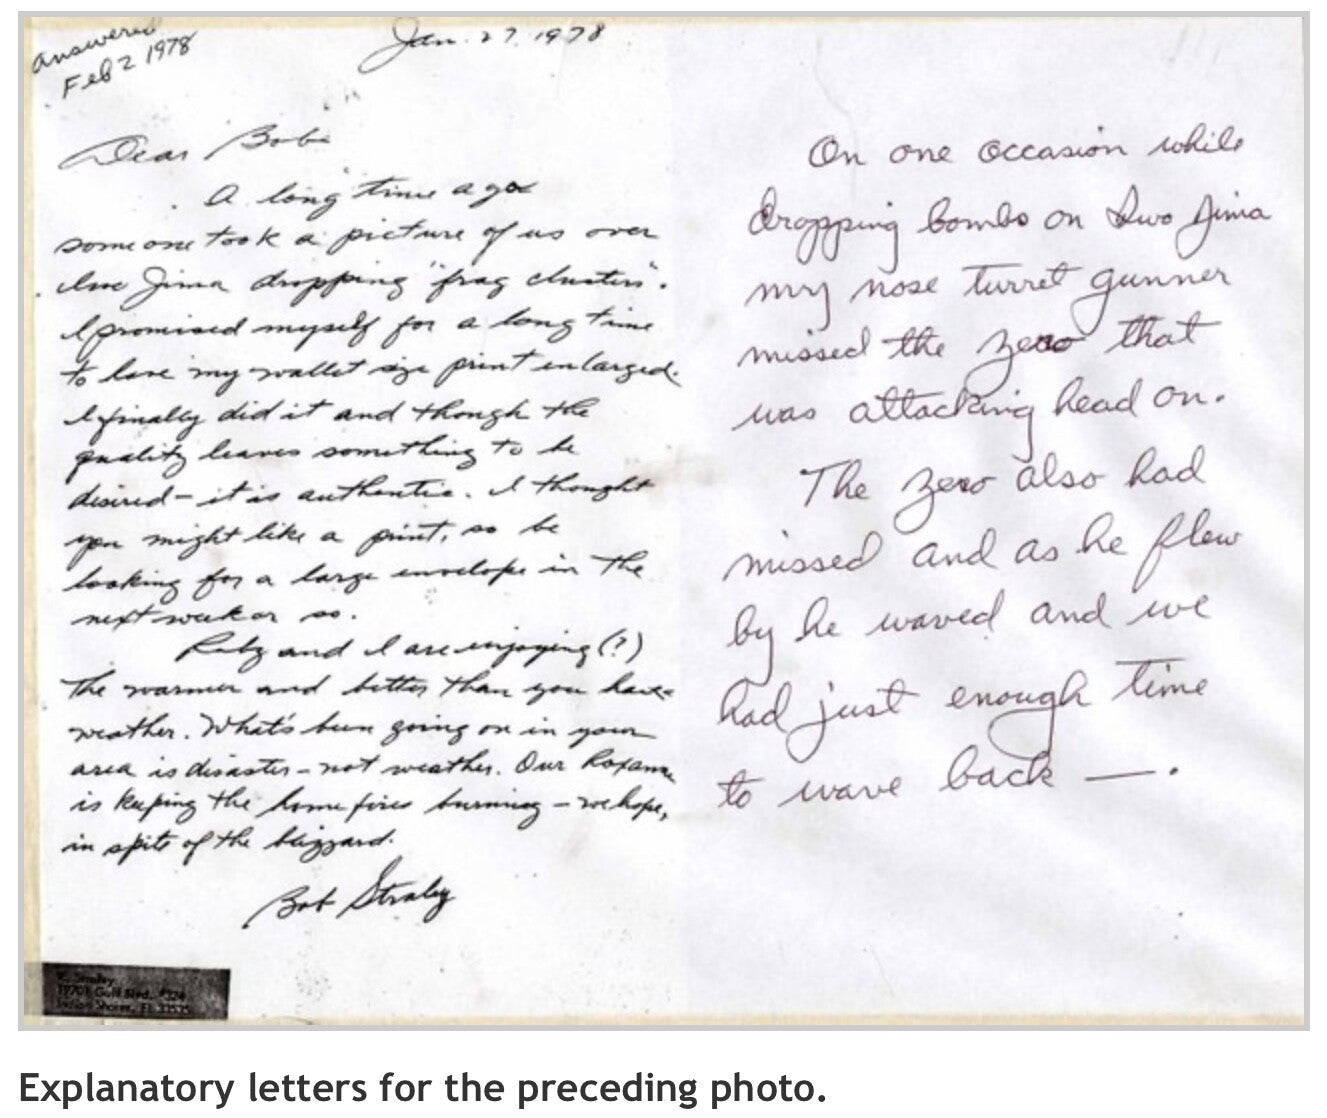 answered
Feb 2 1978
Jan. 27, 1978
Dear Bob
A long time ago
someone took a picture of us over
Iwo Jima dropping "frag clusters".
I promised myself for a long time
to have my wallet size print enlarged.
I finally did it and though the
quality leaves something to be
desired - it is authentic. I thought
you might like a print, so be
looking for a large envelope in the
next week or so.
Ruby and I are enjoying (?)
the warmer and better than you have
weather. What's been going on in your
area is disaster - not weather. Our Roxanne
is keeping the home fires burning - we hope,
in spite of the blizzard.
Bob Straley
Straley
19701 Gulf Blvd.
Indian Shores, FL
On one occasion while
dropping bombs on Iwo Jima
my nose turret gunner
missed the zero that
was attacking head on.
The zero also had
missed and as he flew
by he waved and we
had just enough time
to wave back —.
Explanatory letters for the preceding photo.